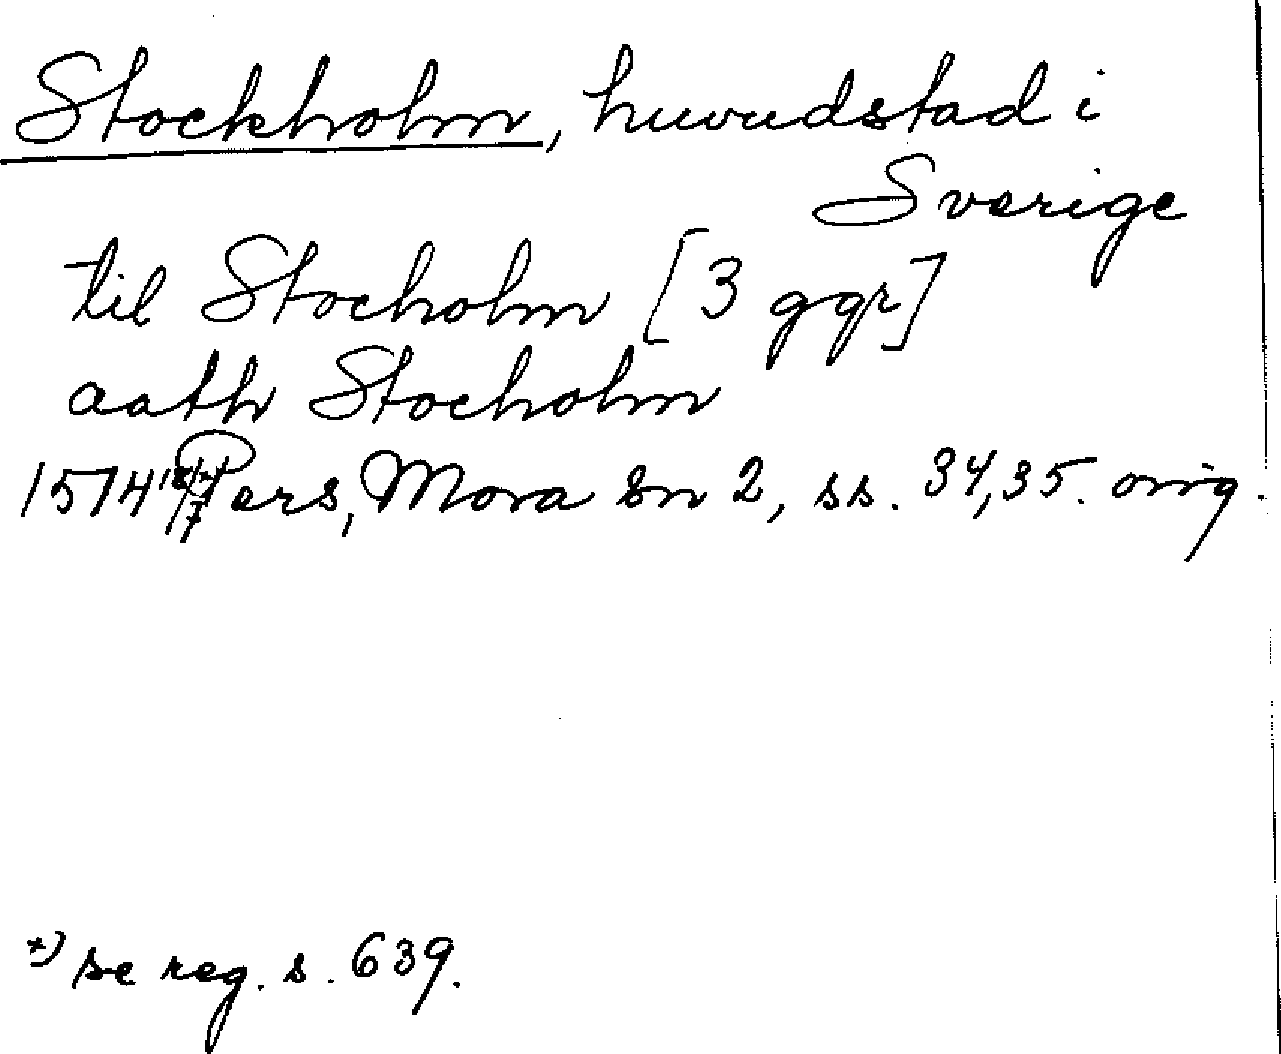 Stockholm, huvudstad i
Sverige
til Stocholm [3 ggr]
aath Stocholm
1574 Pers, Mora sn 2, ss. 34, 35. orig.
*) se reg. s. 639.